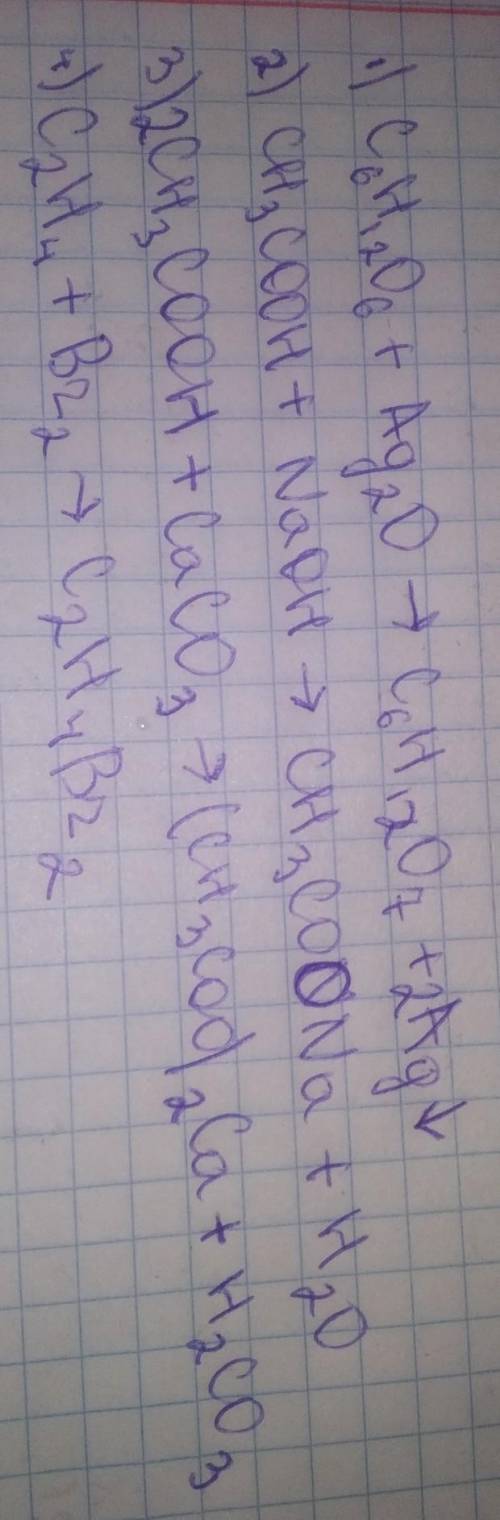 1) C₆H₁₂O₆ + Ag₂O → C₆H₁₂O₇ + 2Ag↓
2) CH₃COOH + NaOH → CH₃COONa + H₂O
3) 2CH₃COOH + CaCO₃ → (CH₃COO)₂Ca + H₂CO₃
4) C₂H₄ + Br₂ → C₂H₄Br₂